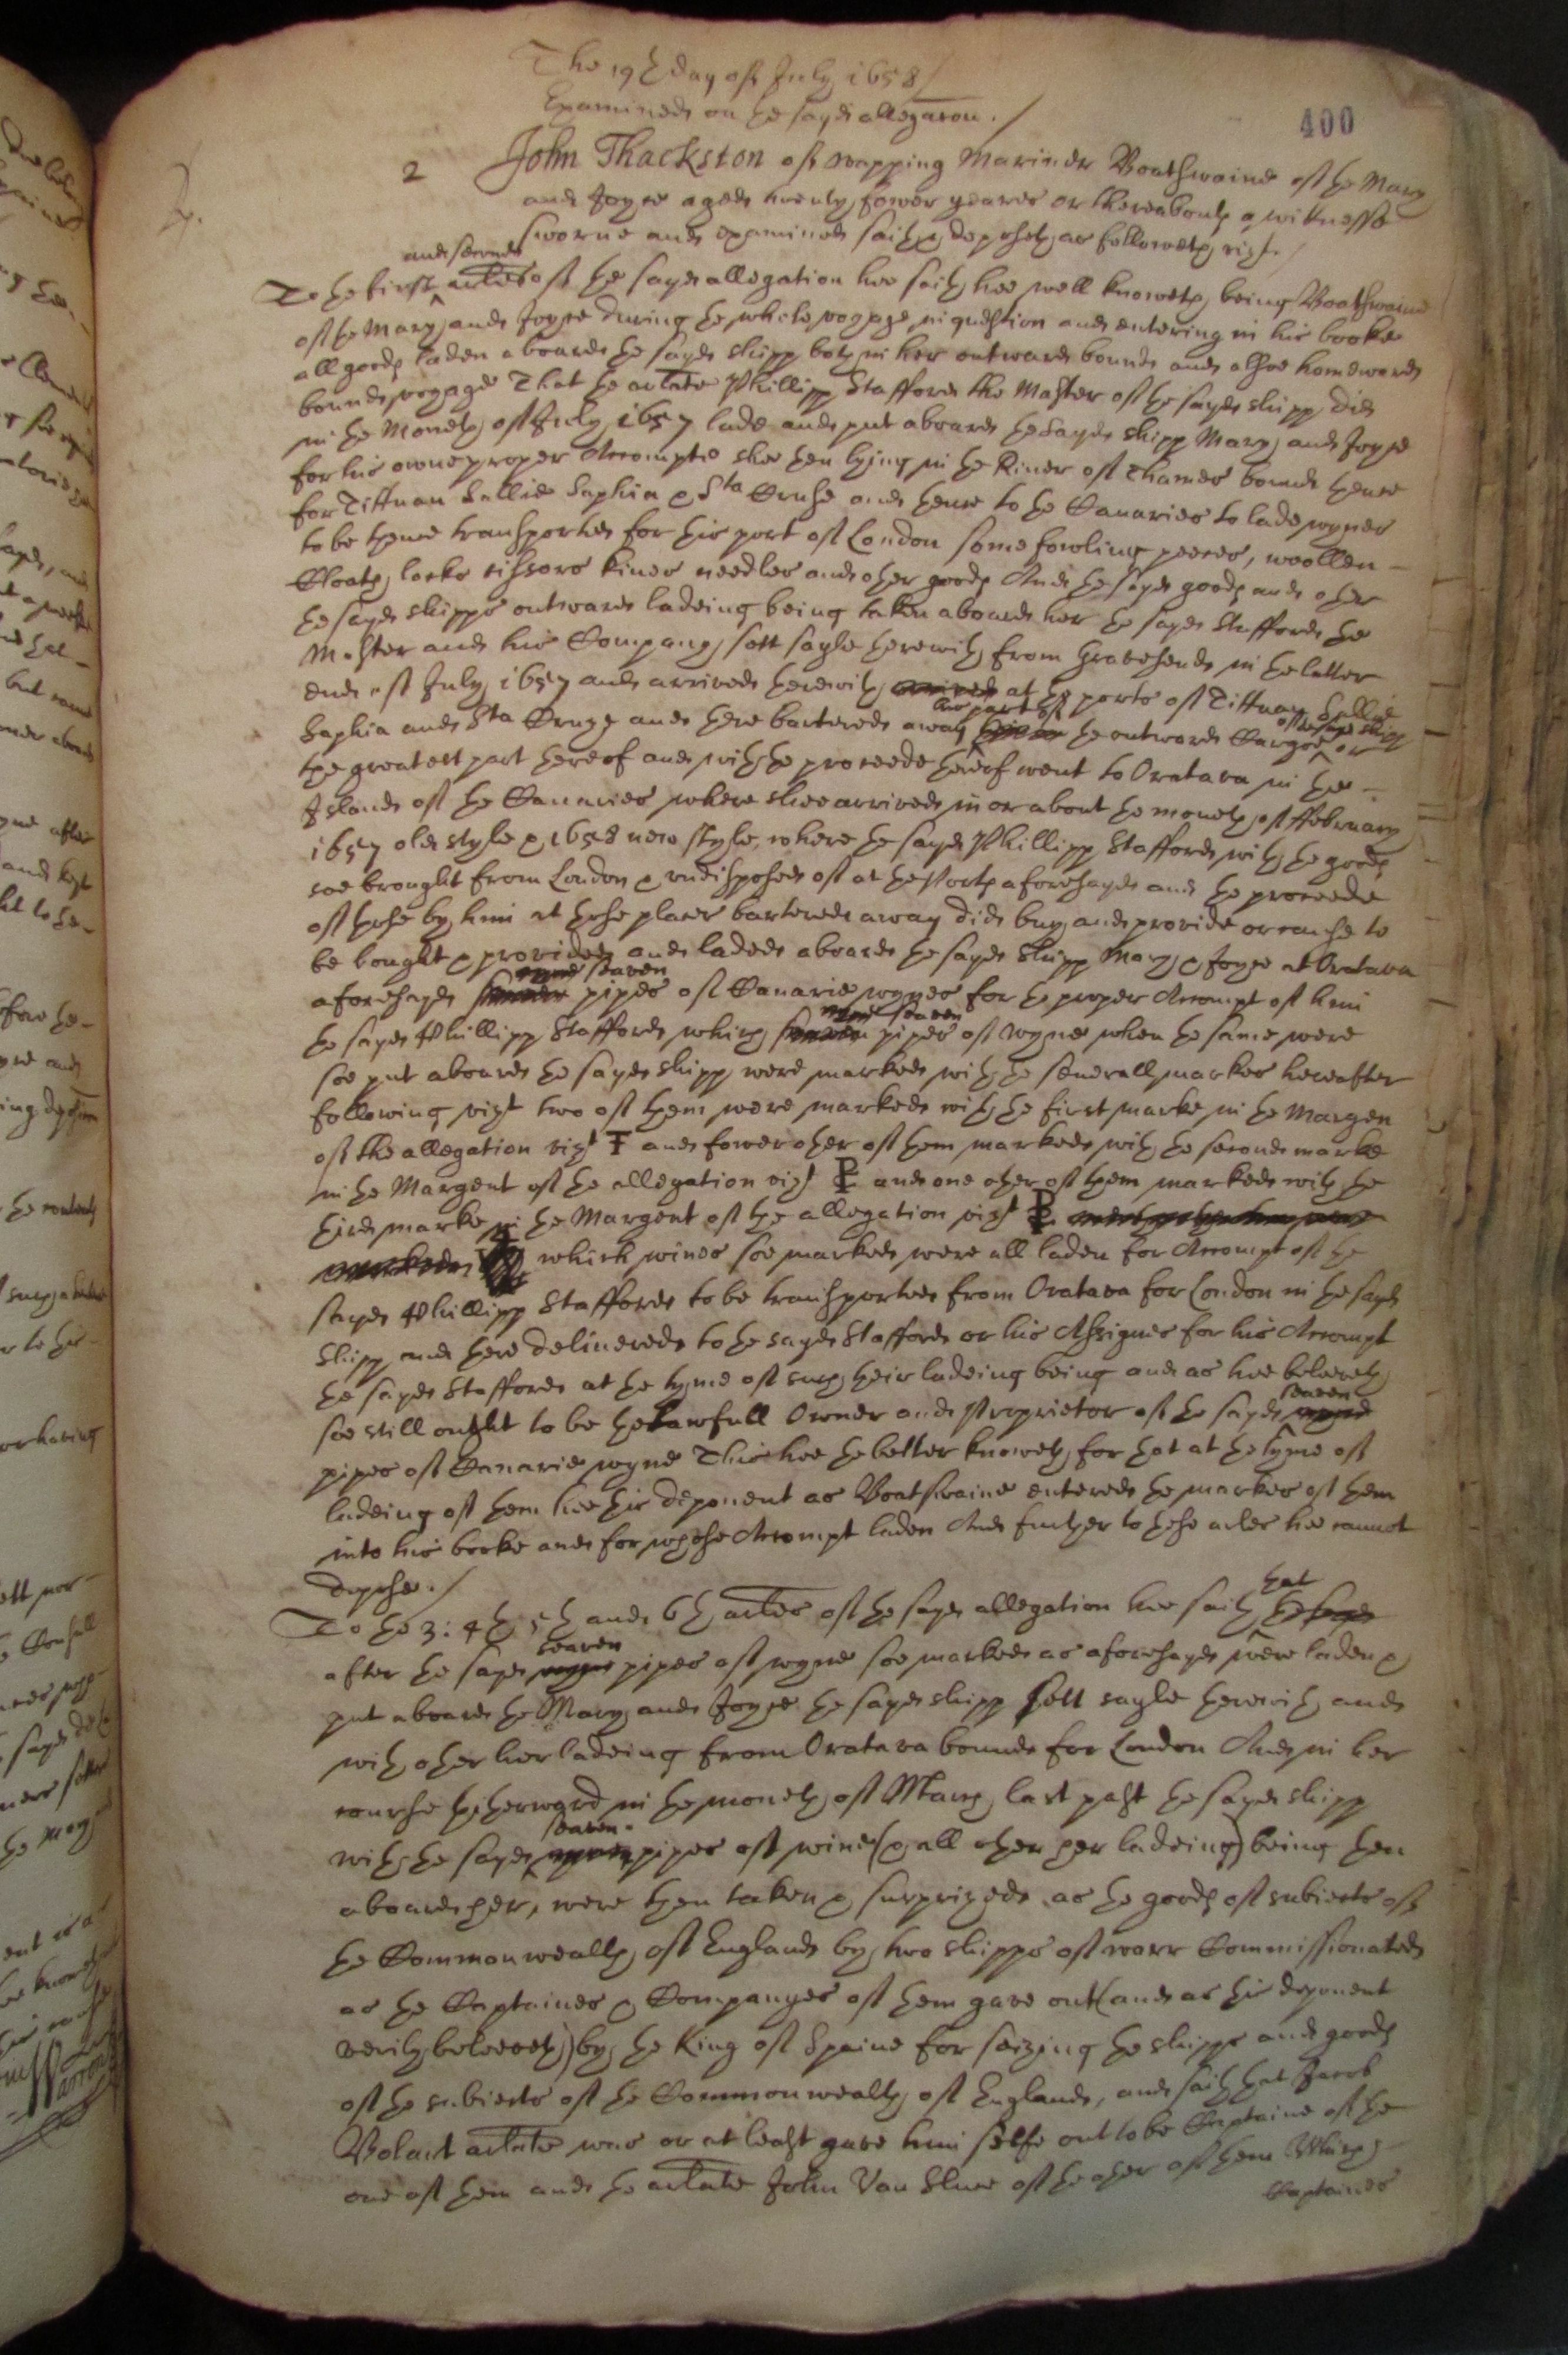 The 19th day of July 1658/
Examined on the sayd allegaton./
400
2 John Thackston of Wapping Mariner Boatswaine of the Mary
and Joyce aged twenty fower yeares or thereabouts a witnesse
sworne and examined saith & deposeth as followeth vizt./
and second
To the first artles of the sayd allegation hee saith hee well knoweth being Boatswaine
of the Mary and Joyce during the whole voyage in question and entering in his booke
all goods laden aboard the sayd shipp both in her outward bound and alsoe homeward
bound voyage That the arlate Phillipp Stafford the Master of the sayd shipp did
in the moneth of July 1657 lade and put aboard the sayd shipp Mary and Joyce
for his owne proper Accompte shee then lying in the River of Thames bound thence
for Tittuan Sallie Saphia & Sta Cruse and thence to the Canaries to lade wynes
to be thence transported for this port of London some fowling peeces, woollen
Cloath, locks sissors kives needles and other goods And the sayd goods and other
the sayd shipps outward ladeing being taken aboard her the sayd Stafford the
Master and his Company sett sayle therewith from Gravesend in the latter
end of July 1657 and arrived therewith arrived at the ports of Tittuan Sallie
his part of
of the sayd shipp
Saphia and Sta Cruze and there bartered away the outward Cargoe or
the greatest part thereof and with the proceede thereof went to Oratava in the
Islands of the Canaries where shee arrived in or about the moneth of ffebruary
1657 old style & 1658 new style, where the sayd Phillipp Stafford with the goods
soe brought from London & undisposed of at the Ports aforesayd and the proceede
of those by him at those places bartered away did buy and provide or cause to
be bought & provided and laded aboard the sayd shipp Mary & Joyce at Oratava
seaven
aforesayd pipes of Canarie wynes for the proper Accompt of him
seaven
the sayd Phillipp Stafford which pipes of wyne when the same were
soe put aboard the sayd shipp were marked with the severall markes hereafter
following vizt two of them were marked with the first marke in the Margen
of the allegation vizt and fower other of them marked with the second marke
in the Margent of the allegation vizt and one other of them marked with the
third marke in the Margent of the allegation vizt
marked which wines soe marked were all laden for Accompt of the
sayd Phillipp Stafford to be transported from Oratava for London in the sayd
shipp and there delivered to the sayd Stafford or his Assignes for his Accompt
the sayd Stafford at the tyme of such their ladeing being and as hee beleeveth
seaven
soe still ought to be the lawfull Owner and Proprietor of the sayd
pipes of Canarie wyne This hee the better knoweth for that at the tyme of
ladeing of them hee this deponent as Boatswaine entered the markes of them
into his booke and for whose Accompt laden And further to these arles hee cannot
depose./
that
To the 3: 4th 5th and 6th artles of the sayd allegation hee saith the sayd
seaven
after the sayd pipes of wyne soe marked as aforesayd were laden &
put aboard the Mary and Joyce the sayd shipp sett sayle therewith and
with other her ladeing from Oratava bound for London And in her
course thitherward in the moneth of March last past the sayd shipp
seaven
with the sayd pipes of wine (& all other her ladeing) being then
aboard her, were then taken & surprized as the goods of subiects of
the Commonwealth of England by two shipps of warr Commissionated
as the Captaines & Companyes of them gave out (and as this deponent
verily beleeveth) by the King of Spaine for seizing the shipps and goods
of the subiects of the Commonwealth of England, and saith that Jacob
Bolart arlate was or at least gave him selfe out to be Captaine of the
one of them and the arlate John Van Sluce of the other of them Which
Captaines